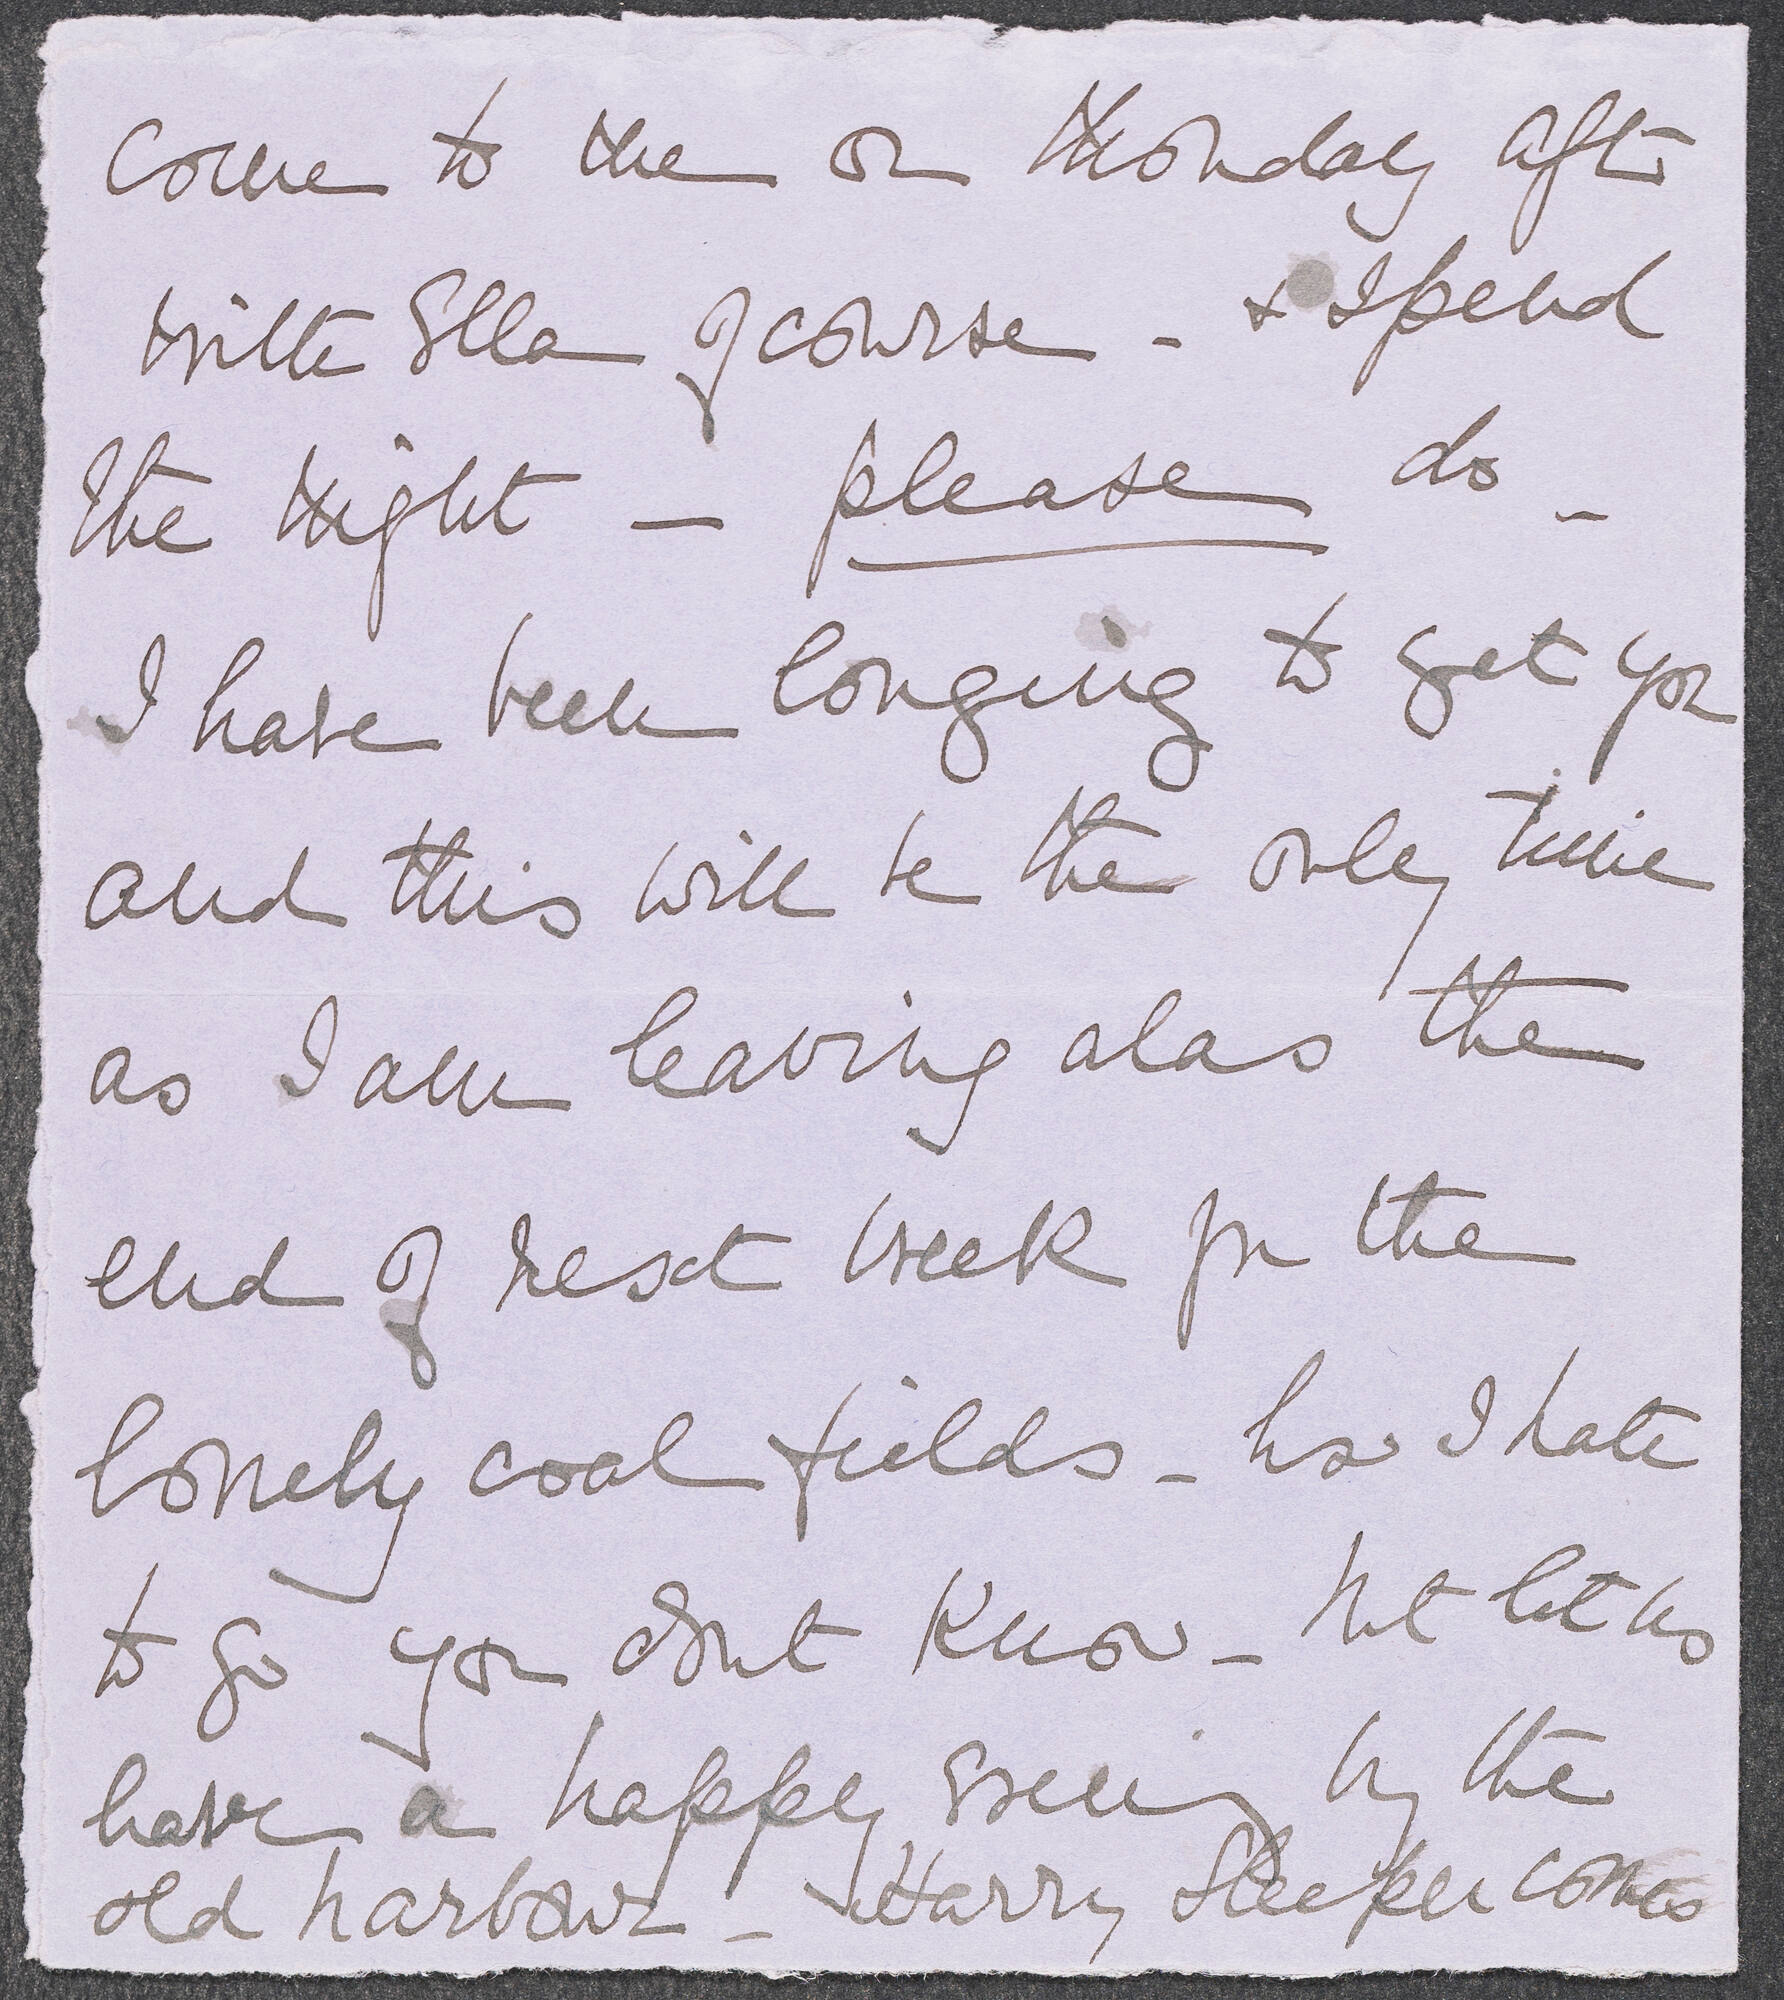 come to me on Monday after
with Ella of course - & spend
the Night - please do -
I have been longing to get you
and this will be the only time
as I am leaving alas the
end of next week for the
lonely coal fields - how I hate
to go you don't know - but let us
have a happy evening by the
old harbour - Harry Sleeper comes